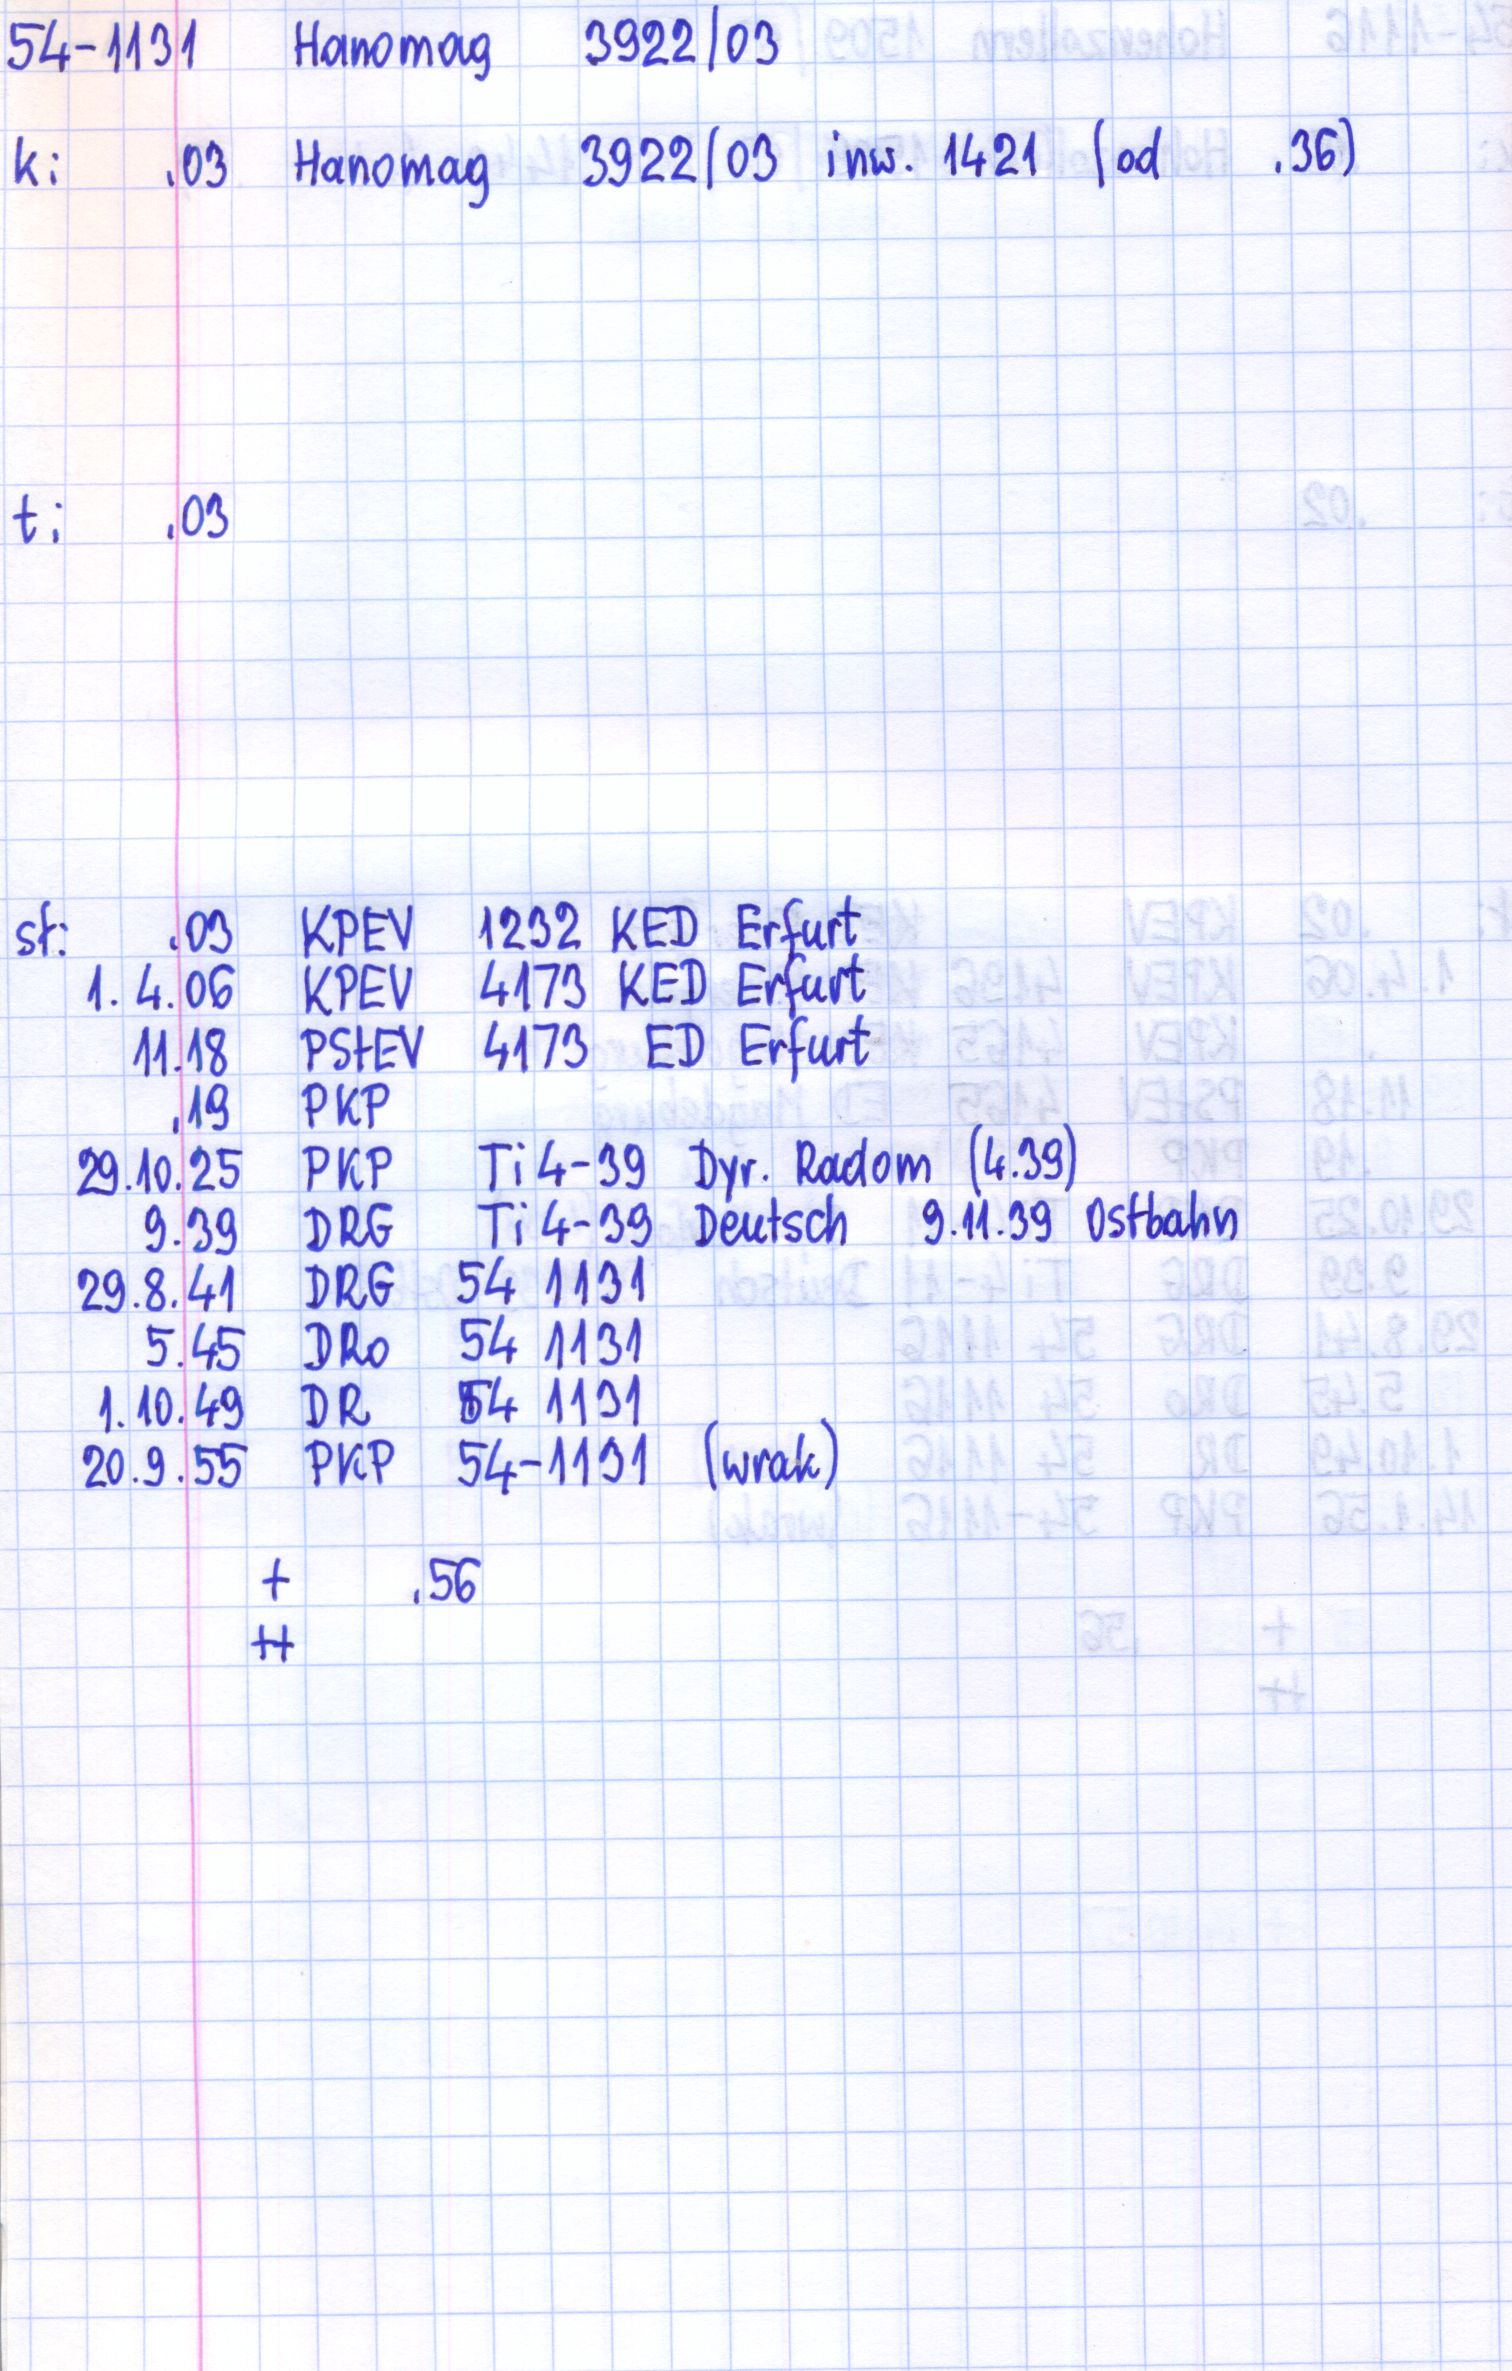 54-1131 Hanomag 3922/03
k: .03 Hanomag 3922/03 inw. 1421 (od .36)
t: .03
st: .03 KPEV 1232 KED Erfurt
1.4.06 KPEV 4173 KED Erfurt
11.18 PStEV 4173 ED Erfurt
.19 PKP
29.10.25 PKP Ti4-39 Dyr. Radom (4.39)
9.39 DRG Ti4-39 Deutsch 9.11.39 Ostbahn
29.8.41 DRG 54 1131
5.45 DRo 54 1131
1.10.49 DR 54 1131
20.9.55 PKP 54-1131 (wrak)
+ .56
++